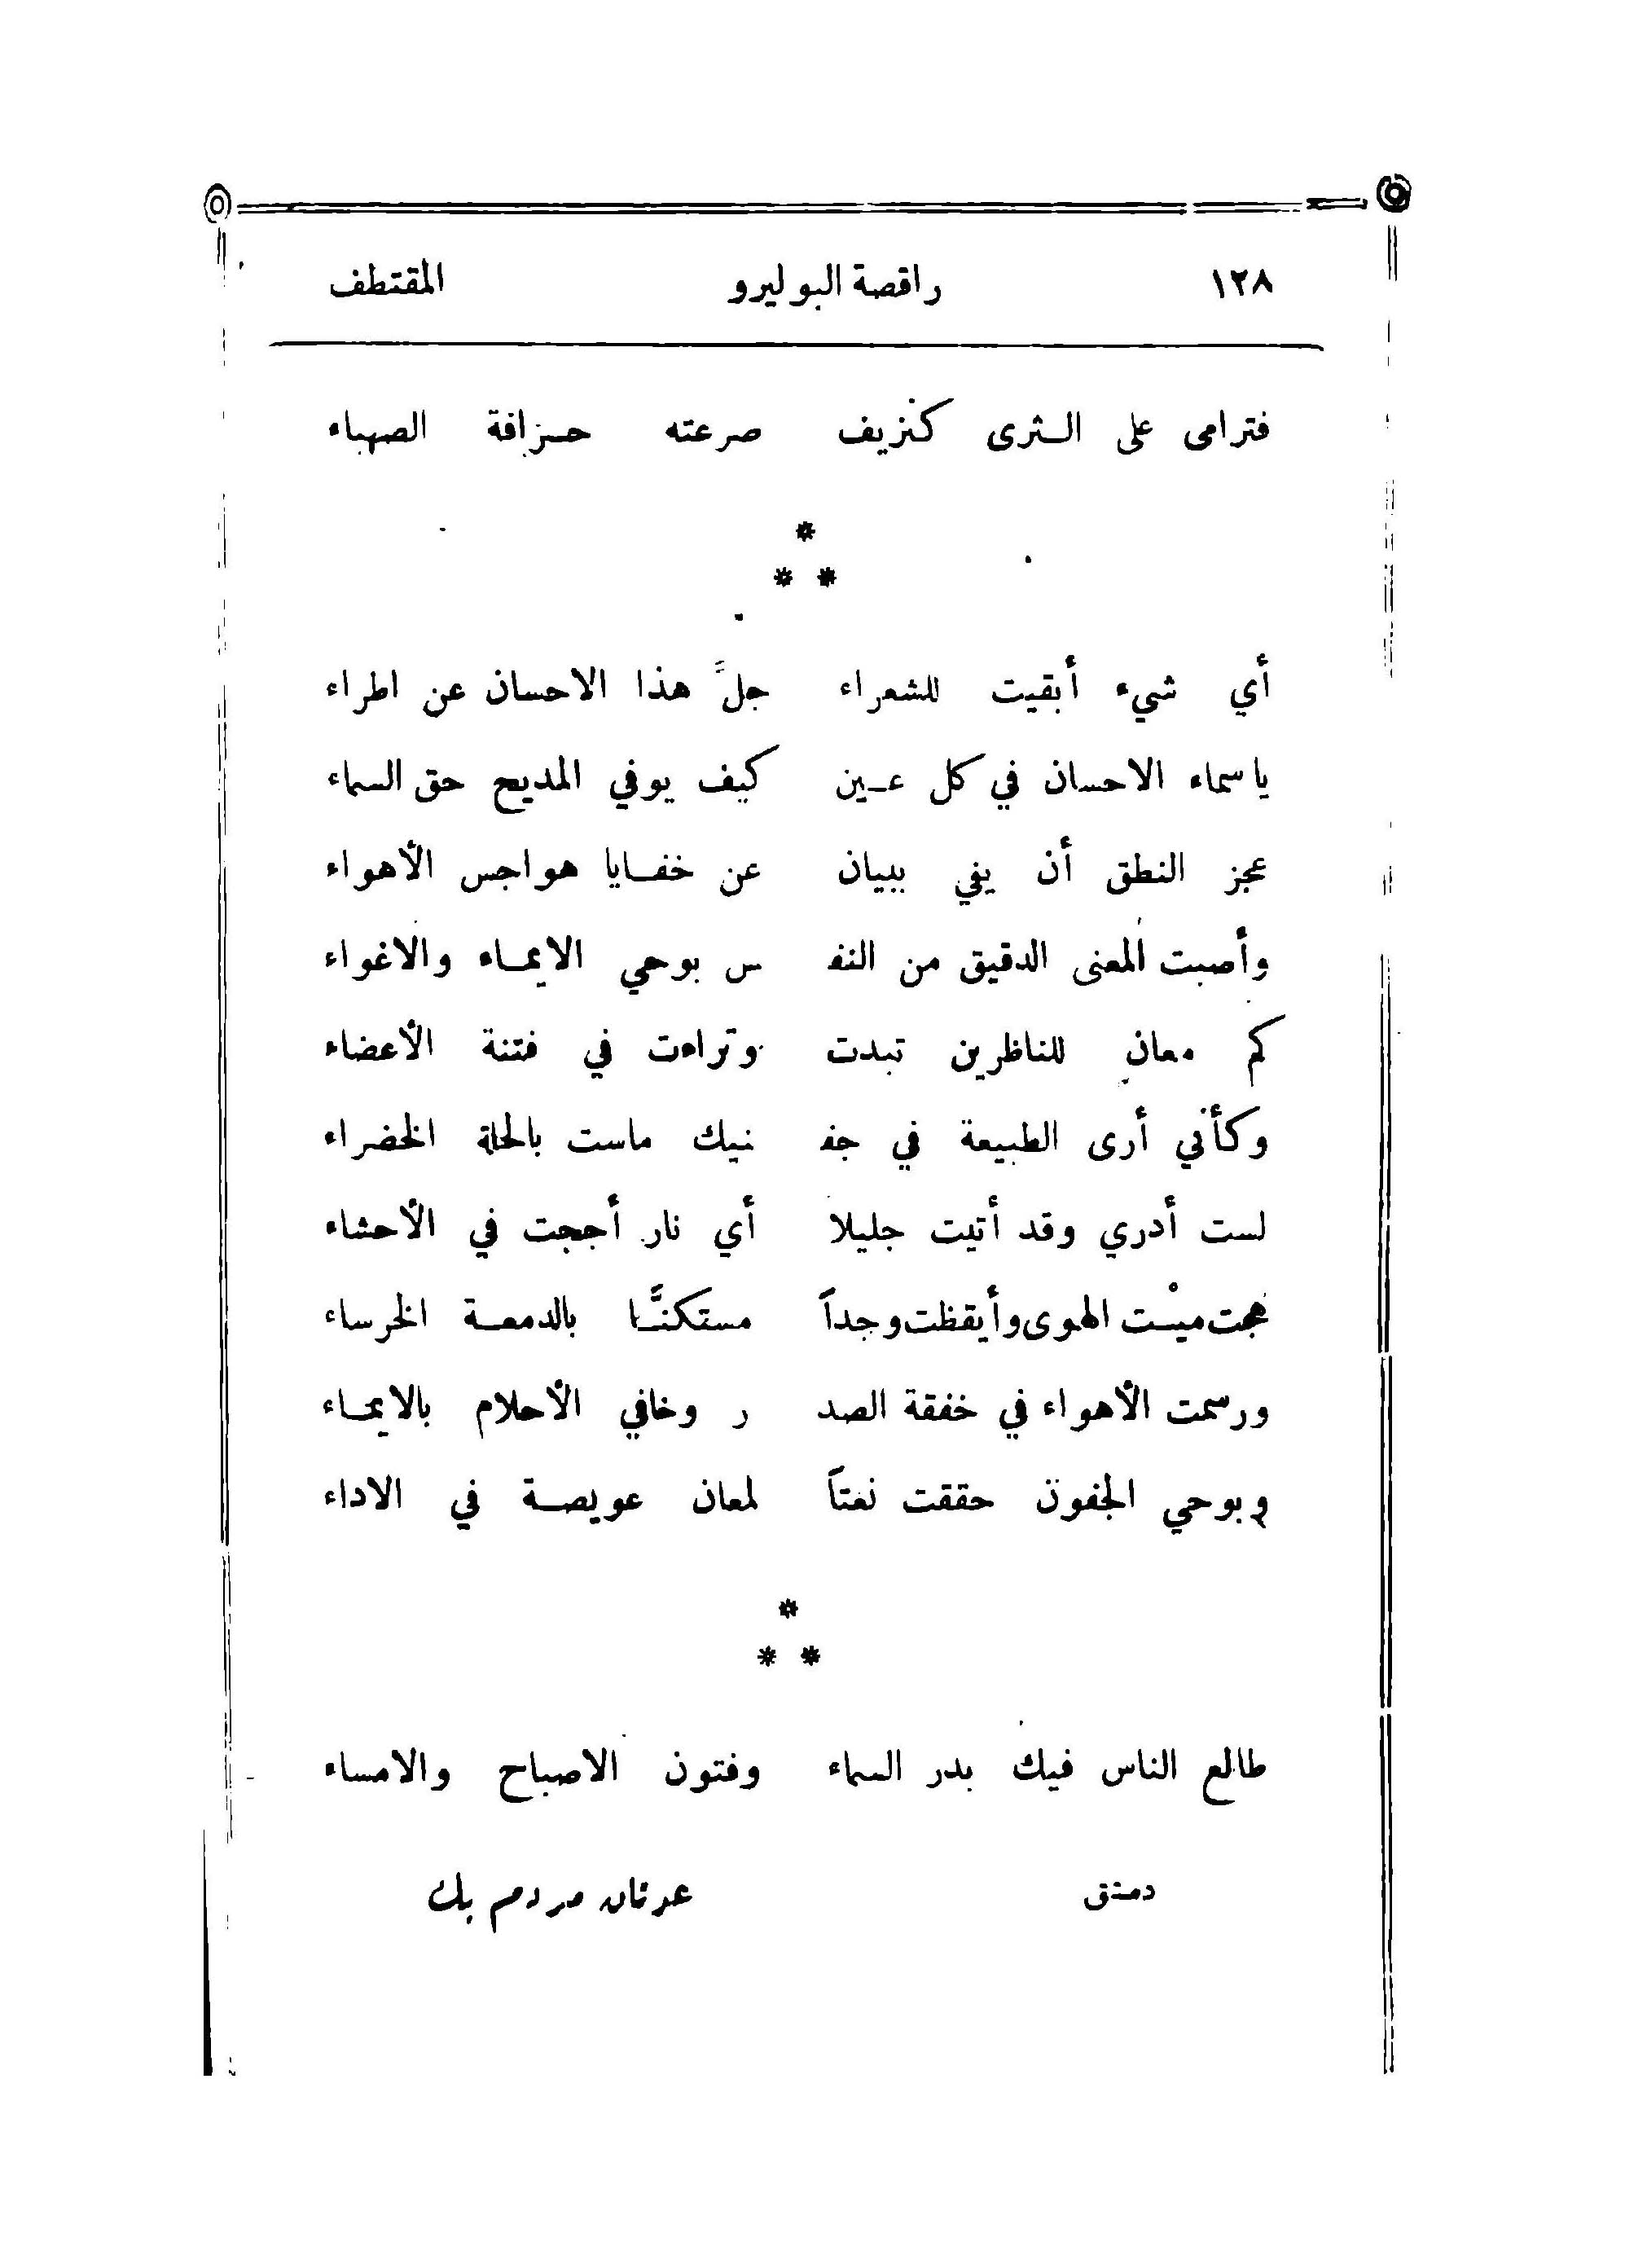 ١٢٨ راقصة البوليرو المقتطف
فترامى على الثرى كنزيف صرعته حزافة الصهباء
*
* *
أي شيء أبقيت للشعراء جلَّ هذا الاحسان عن اطراء
يا سماء الاحسان في كل عين كيف يوفي المديح حق السماء
عجز النطق أن يفي ببيان عن خفايا هواجس الأهواء
وأصبت المعنى الدقيق من النفـ س بوحي الايماء والاغواء
كم معانٍ للناظرين تبدت وتراءت في فتنة الأعضاء
وكأني أرى الطبيعة في جفـ نيك ماست بالحلة الخضراء
لست أدري وقد أتيت جليلا أي نار أججت في الأحشاء
هجت ميْت الهوى وأيقظت وجداً مستكنًّا بالدمعة الخرساء
ورسمت الأهواء في خفقة الصد ر وخافي الأحلام بالايماء
وبوحي الجفون حققت نعتاً لمعان عويصة في الاداء
*
* *
طالع الناس فيك بدر السماء وفتون الاصباح والامساء
دمشق عدنان مردم بك